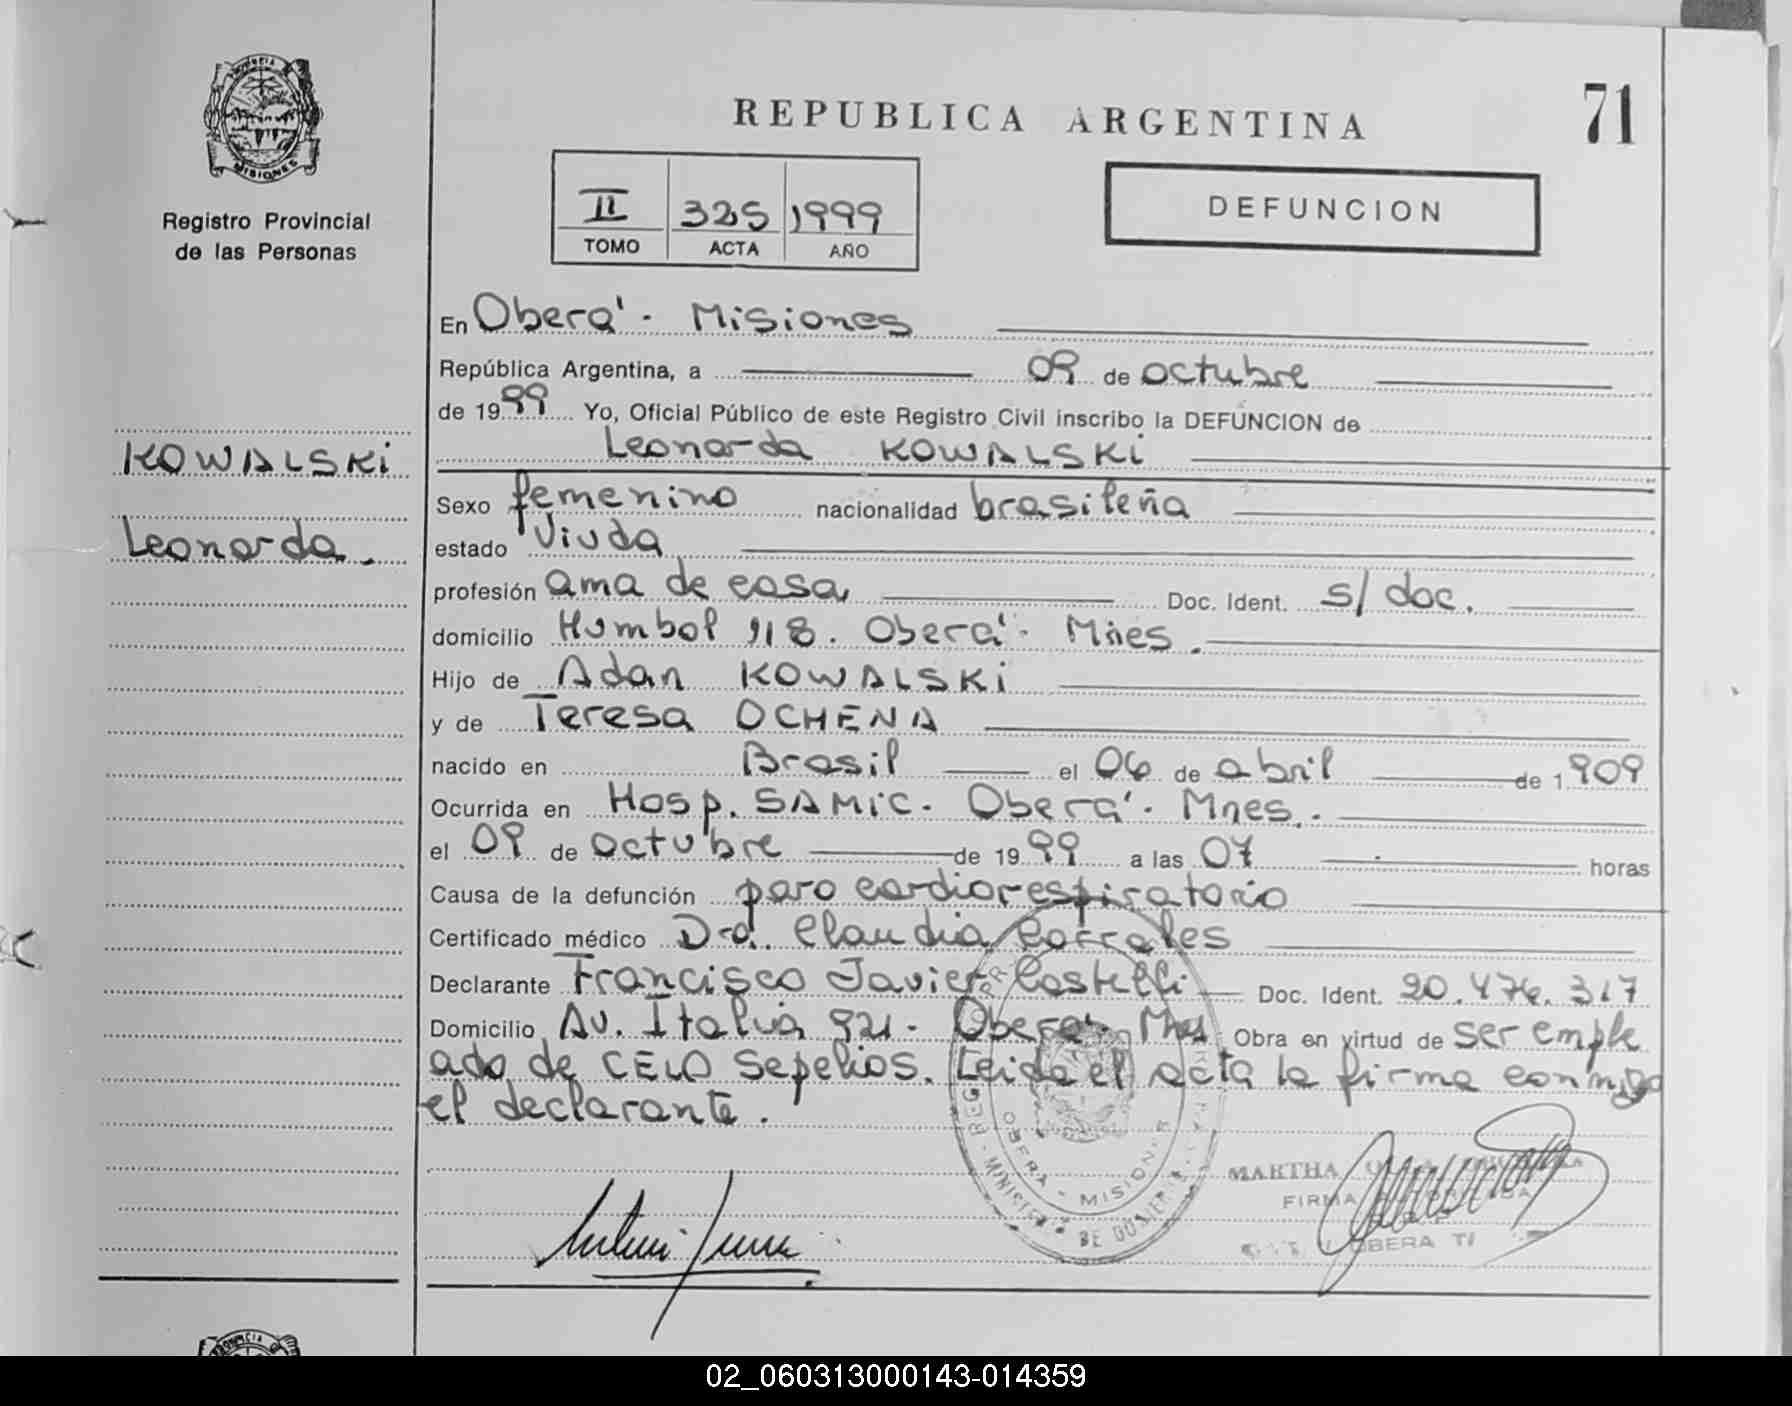 REPUBLICA ARGENTINA
71
PROVINCIA DE
MISIONES
Registro Provincial
de las Personas
II 325 1999
TOMO ACTA AÑO
DEFUNCION
KOWALSKi
Leonarda.
En Oberá - Misiones
República Argentina, a 09 de octubre
de 1999 Yo, Oficial Público de este Registro Civil inscribo la DEFUNCION de
Leonarda KOWALSKi
Sexo femenino nacionalidad brasileña
estado Viuda
profesión ama de casa Doc. Ident. s/ doc.
domicilio Humbol 118. Oberá - Mnes.
Hijo de Adan KOWALSKi
y de Teresa OCHENA
nacido en Brasil el 06 de abril de 1909
Ocurrida en Hosp. SAMiC. Oberá - Mnes.
el 09 de octubre de 1999 a las 07 horas
Causa de la defunción paro cardiorespiratorio
Certificado médico Dra. Claudia Corrales
Declarante Francisco Javier Castelli Doc. Ident. 20.476.317
Domicilio Av. Italia 921 - Oberá - Mnes Obra en virtud de ser emple
ado de CELO Sepelios. Leida el acta la firma conmigo
el declarante.
OBERA - MISIONES
MINISTERIO DE GOBIERNO
MARTHA
FIRMA AUTORIZADA
OBERA
02_060313000143-014359